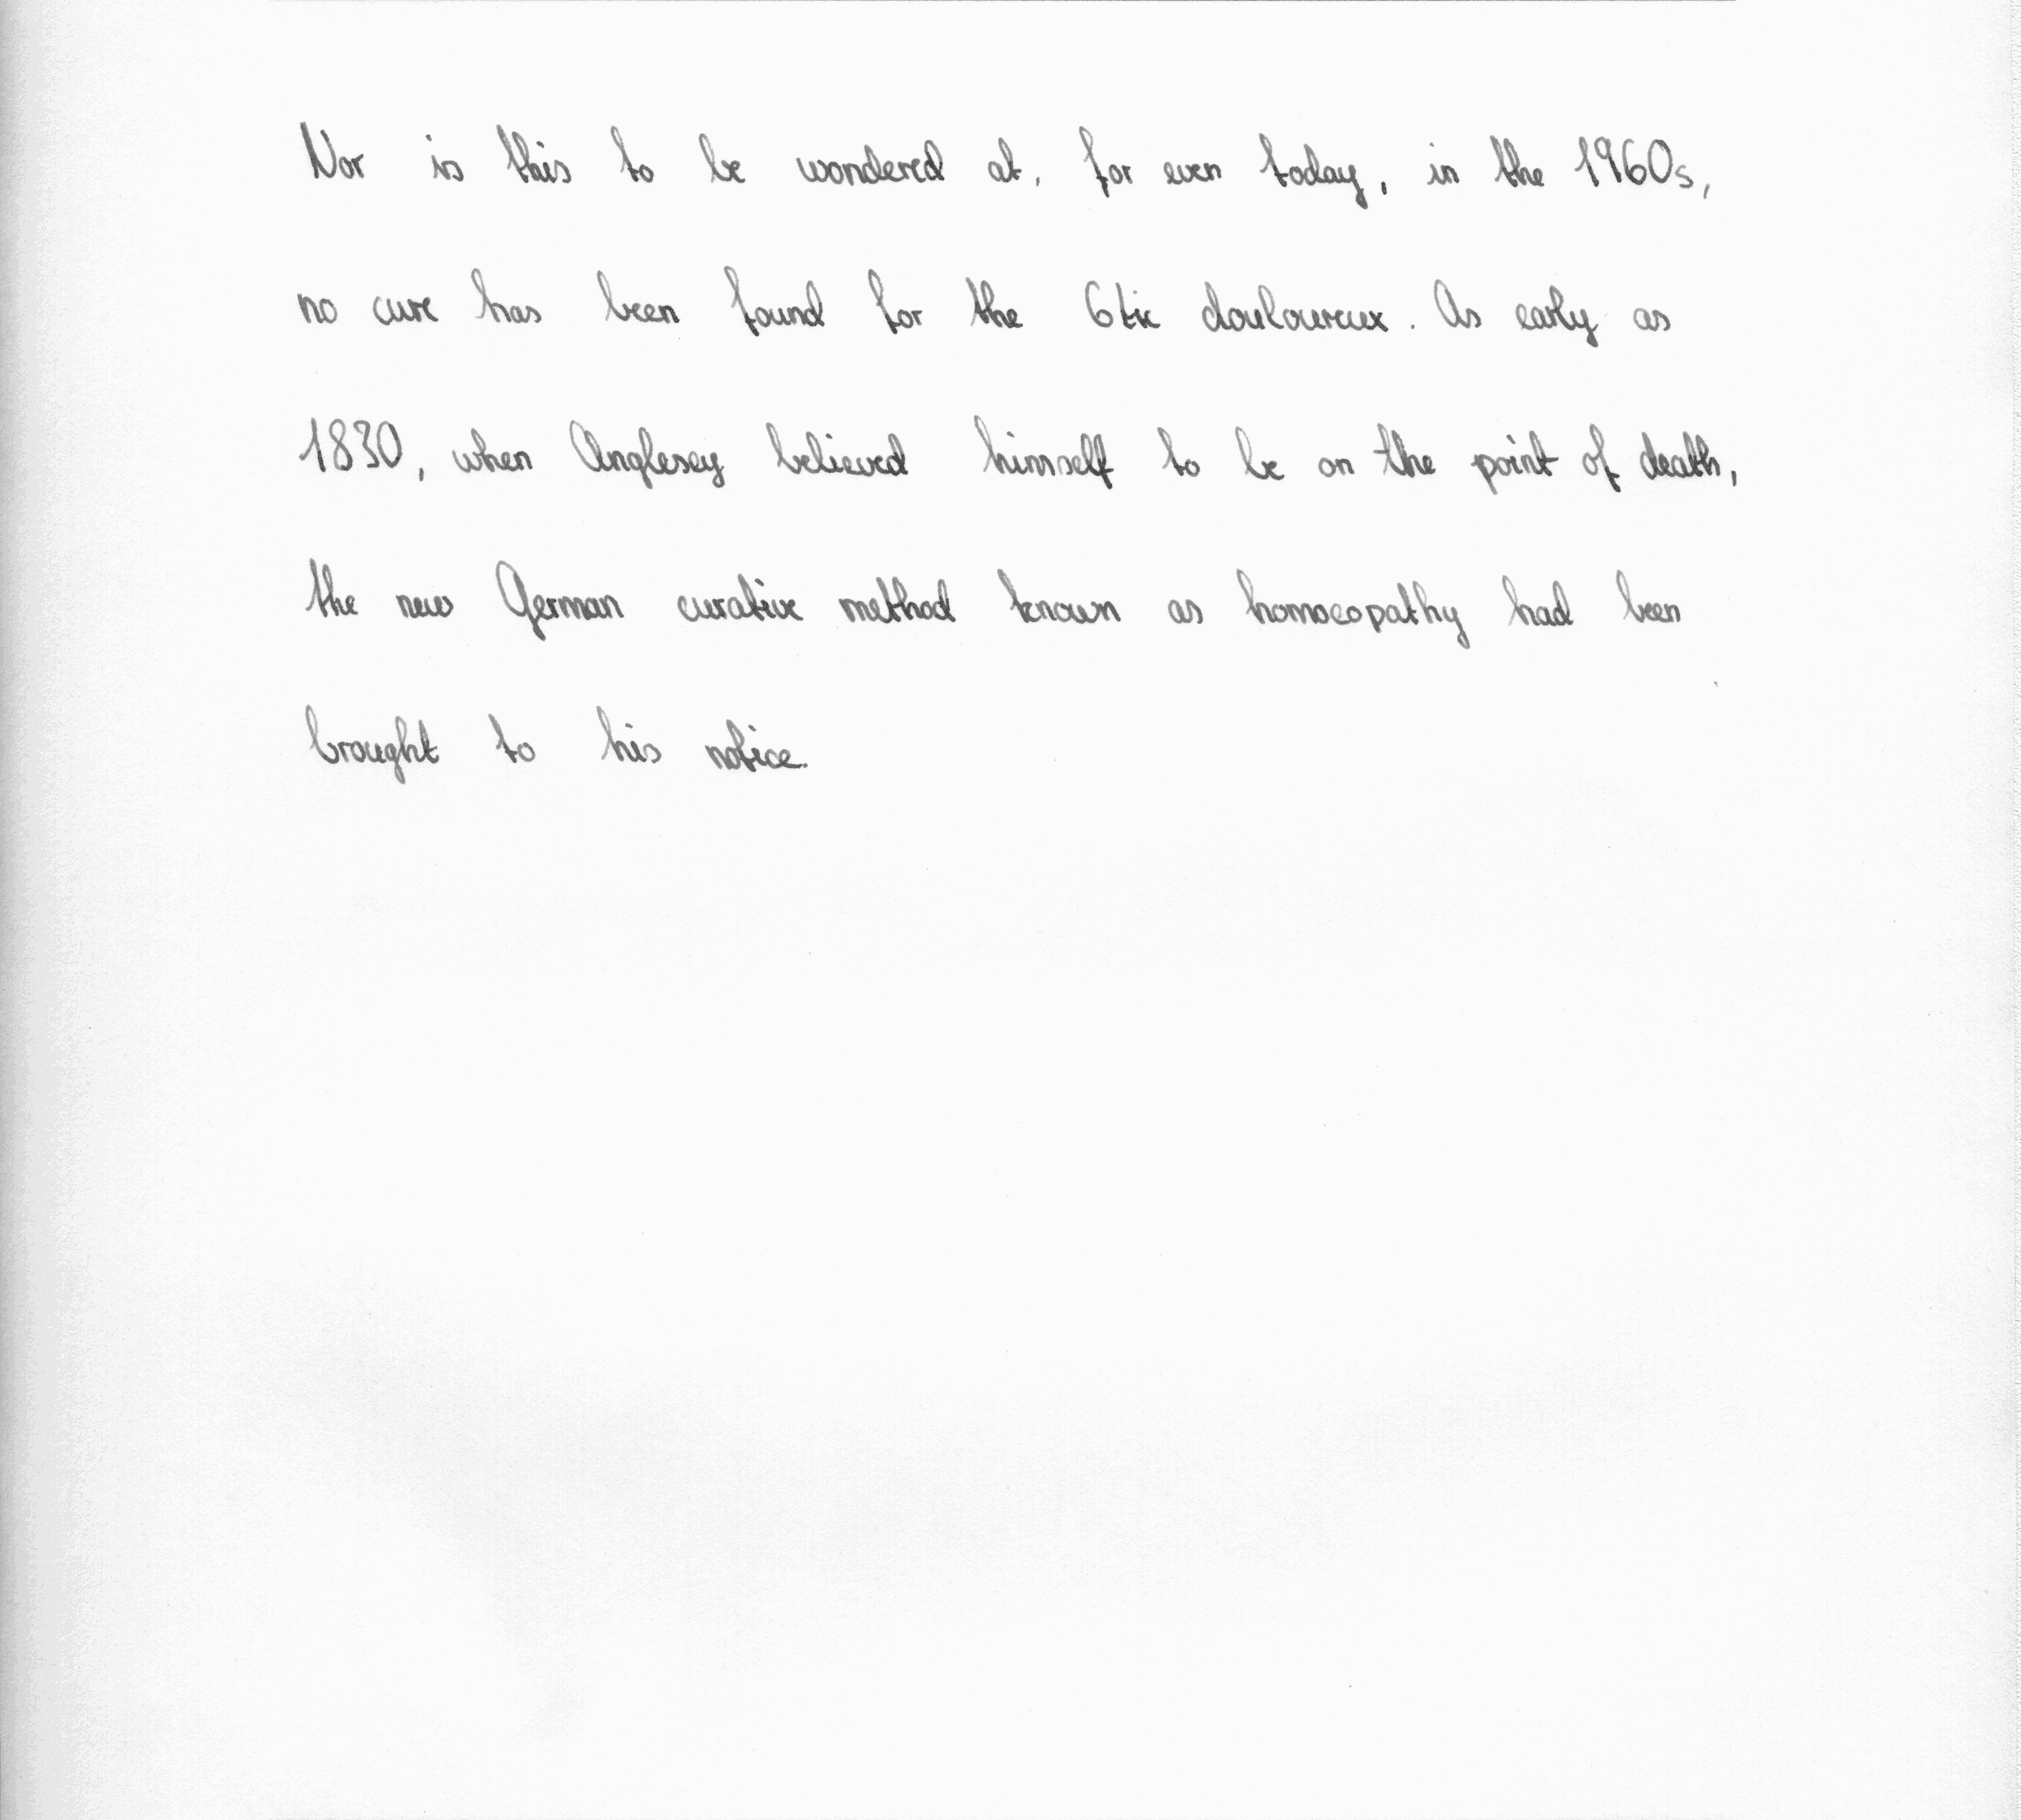 Nor is this to be wondered at, for even today, in the 1960s,
no cure has been found for the 6tic douloureux. As early as
1830, when Anglesey believed himself to be on the point of death,
the new German curative method known as homoeopathy had been
brought to his notice.